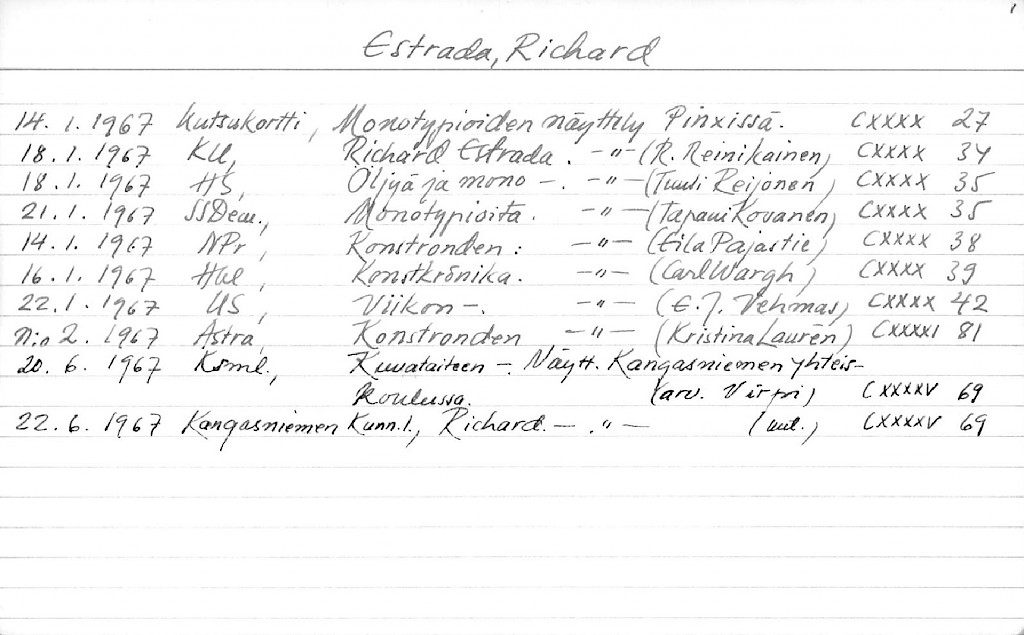 Estrada, Richard
14. 1. 1967 Kutsukortti, Monotypioiden näyttely Pinxissä. CXXXX 27
18. 1. 1967 KU, Richard Estrada. -"- (R. Reinikainen) CXXXX 34
18. 1. 1967 HS, Öljyä ja mono -. -"- (Tuuli Reijonen) CXXXX 35
21. 1. 1967 SSDem., Monotypioita. -"- (Tapani Kovanen) CXXXX 35
14. 1. 1967 NPr, Konstronden: -"- (Eila Pajastie) CXXXX 38
16. 1. 1967 Hbl, Konstkrönika. -"- (Carl Wargh) CXXXX 39
22. 1. 1967 US, Viikon -. -"- (E. J. Vehmas) CXXXX 42
N:o 2. 1967 Astra, Konstronden -"- (Kristina Laurén) CXXXXI 81
20. 6. 1967 Ksml., Kuvataiteen -. Näytt. Kangasniemen yhteis-
koulussa. (arv. Virpi) CXXXXV 69
22. 6. 1967 Kangasniemen Kunn.l., Richard. - . "- CXXXXV 69